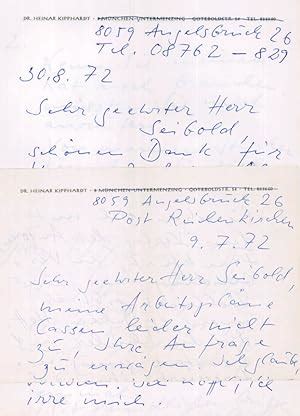 DR. HEINAR KIPPHARDT · 8 MÜNCHEN-UNTERMENZING · GOTEBOLDSTR. 54 · TEL.
8059 Angelsbrück 26
Tel. 08762 – 829
30.8.72
Sehr geehrter Herr
Seibold,
schönen Dank für
DR. HEINAR KIPPHARDT · 8 MÜNCHEN-UNTERMENZING · GOTEBOLDSTR. 54 · TEL.
8059 Angelsbrück 26
Post Reichenkirchen
9.7.72
Sehr geehrter Herr Seibold,
meine Arbeitspläne
lassen leider nicht
zu, Ihre Anfrage
zu erwägen. Ich glaube,
irre mich.